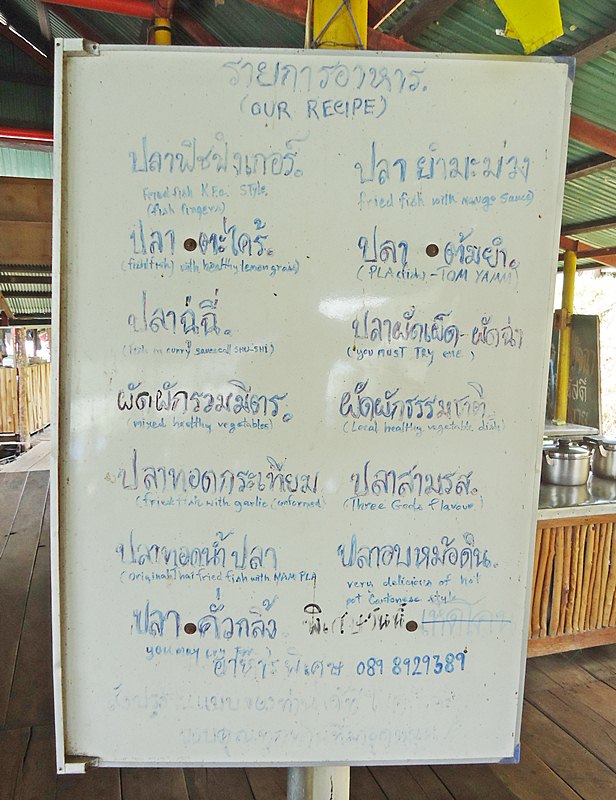 รายการอาหาร.
(OUR RECIPE)
ปลาฟิชฟิงเกอร์.
Fried fish K.F.C. STYLE
(fish fingers)
ปลา ยำมะม่วง
fried fish with Mango Sauce)
ปลา ตะไคร้.
(fish) with healthy lemon grass)
ปลา ต้มยำ.
(PLA (fish) - TOM YAMM)
ปลาฉู่ฉี่.
(fish in curry sauce SHU-SHI)
ปลาผัดเผ็ด-ผัดฉ่า
(you MUST TRY ONE)
ผัดผักรวมมิตร.
(mixed healthy vegetables)
ผัดผักธรรมชาติ.
(Local healthy vegetable dish)
ปลาทอดกระเทียม
(fried fish with garlic
ปลาสามรส.
(Three Gods Flavour)
ปลาทอดน้ำปลา
(original Thai fried fish with NAM PLA
ปลาอบหม้อดิน.
very delicious of hot
pot Cantonese style
ปลา คั่วกลิ้ง
you may try
พิเศษวันนี้
อาหารพิเศษ 089 8929389